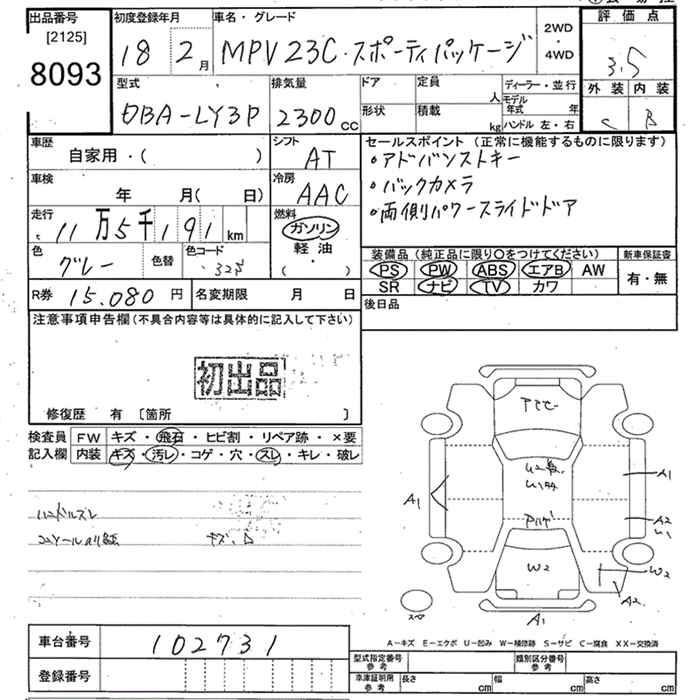 出品番号
[2125]
8093
初度登録年月
18 2月
車名・グレード
MPV 23C・スポーティパッケージ
2WD
・
4WD
評価点
3.5
外装 内装
C B
型式
DBA-LY3P
排気量
2300cc
ドア
形状
定員
人
積載
kg
ディーラー・並行
モデル年式 年
ハンドル 左・右
車歴
自家用・( )
シフト
AT
車検
年 月( 日)
冷房
AAC
走行
11万5千191km
燃料
ガソリン
軽油
・
( )
色
グレー
色替
色コード
R券 15.080円
名変期限 月 日
セールスポイント(正常に機能するものに限ります)
・アドバンストキー
・バックカメラ
・両側パワースライドドア
装備品(純正品に限り〇をつけてください)
新車保証書
PS PW ABS エアB AW
SR ナビ TV カワ
有・無
後日品
注意事項申告欄(不具合内容等は具体的に記入して下さい)
初出品
修復歴 有 [箇所 ]
検査員
記入欄
FW キズ・飛石・ヒビ割・リペア跡・×要
内装 キズ・汚レ・コゲ・穴・スレ・キレ・破レ
ハンドルスレ
A1
A1
A2
U1
W2
W2
A2
A1
スペア
A-キズ E-エクボ U-凹み W-補修跡 S-サビ C-腐食 XX-交換済
車台番号 102731
登録番号
型式指定番号
参考
類別区分番号
参考
車庫証明用
参考
長さ cm 幅 cm 高さ cm